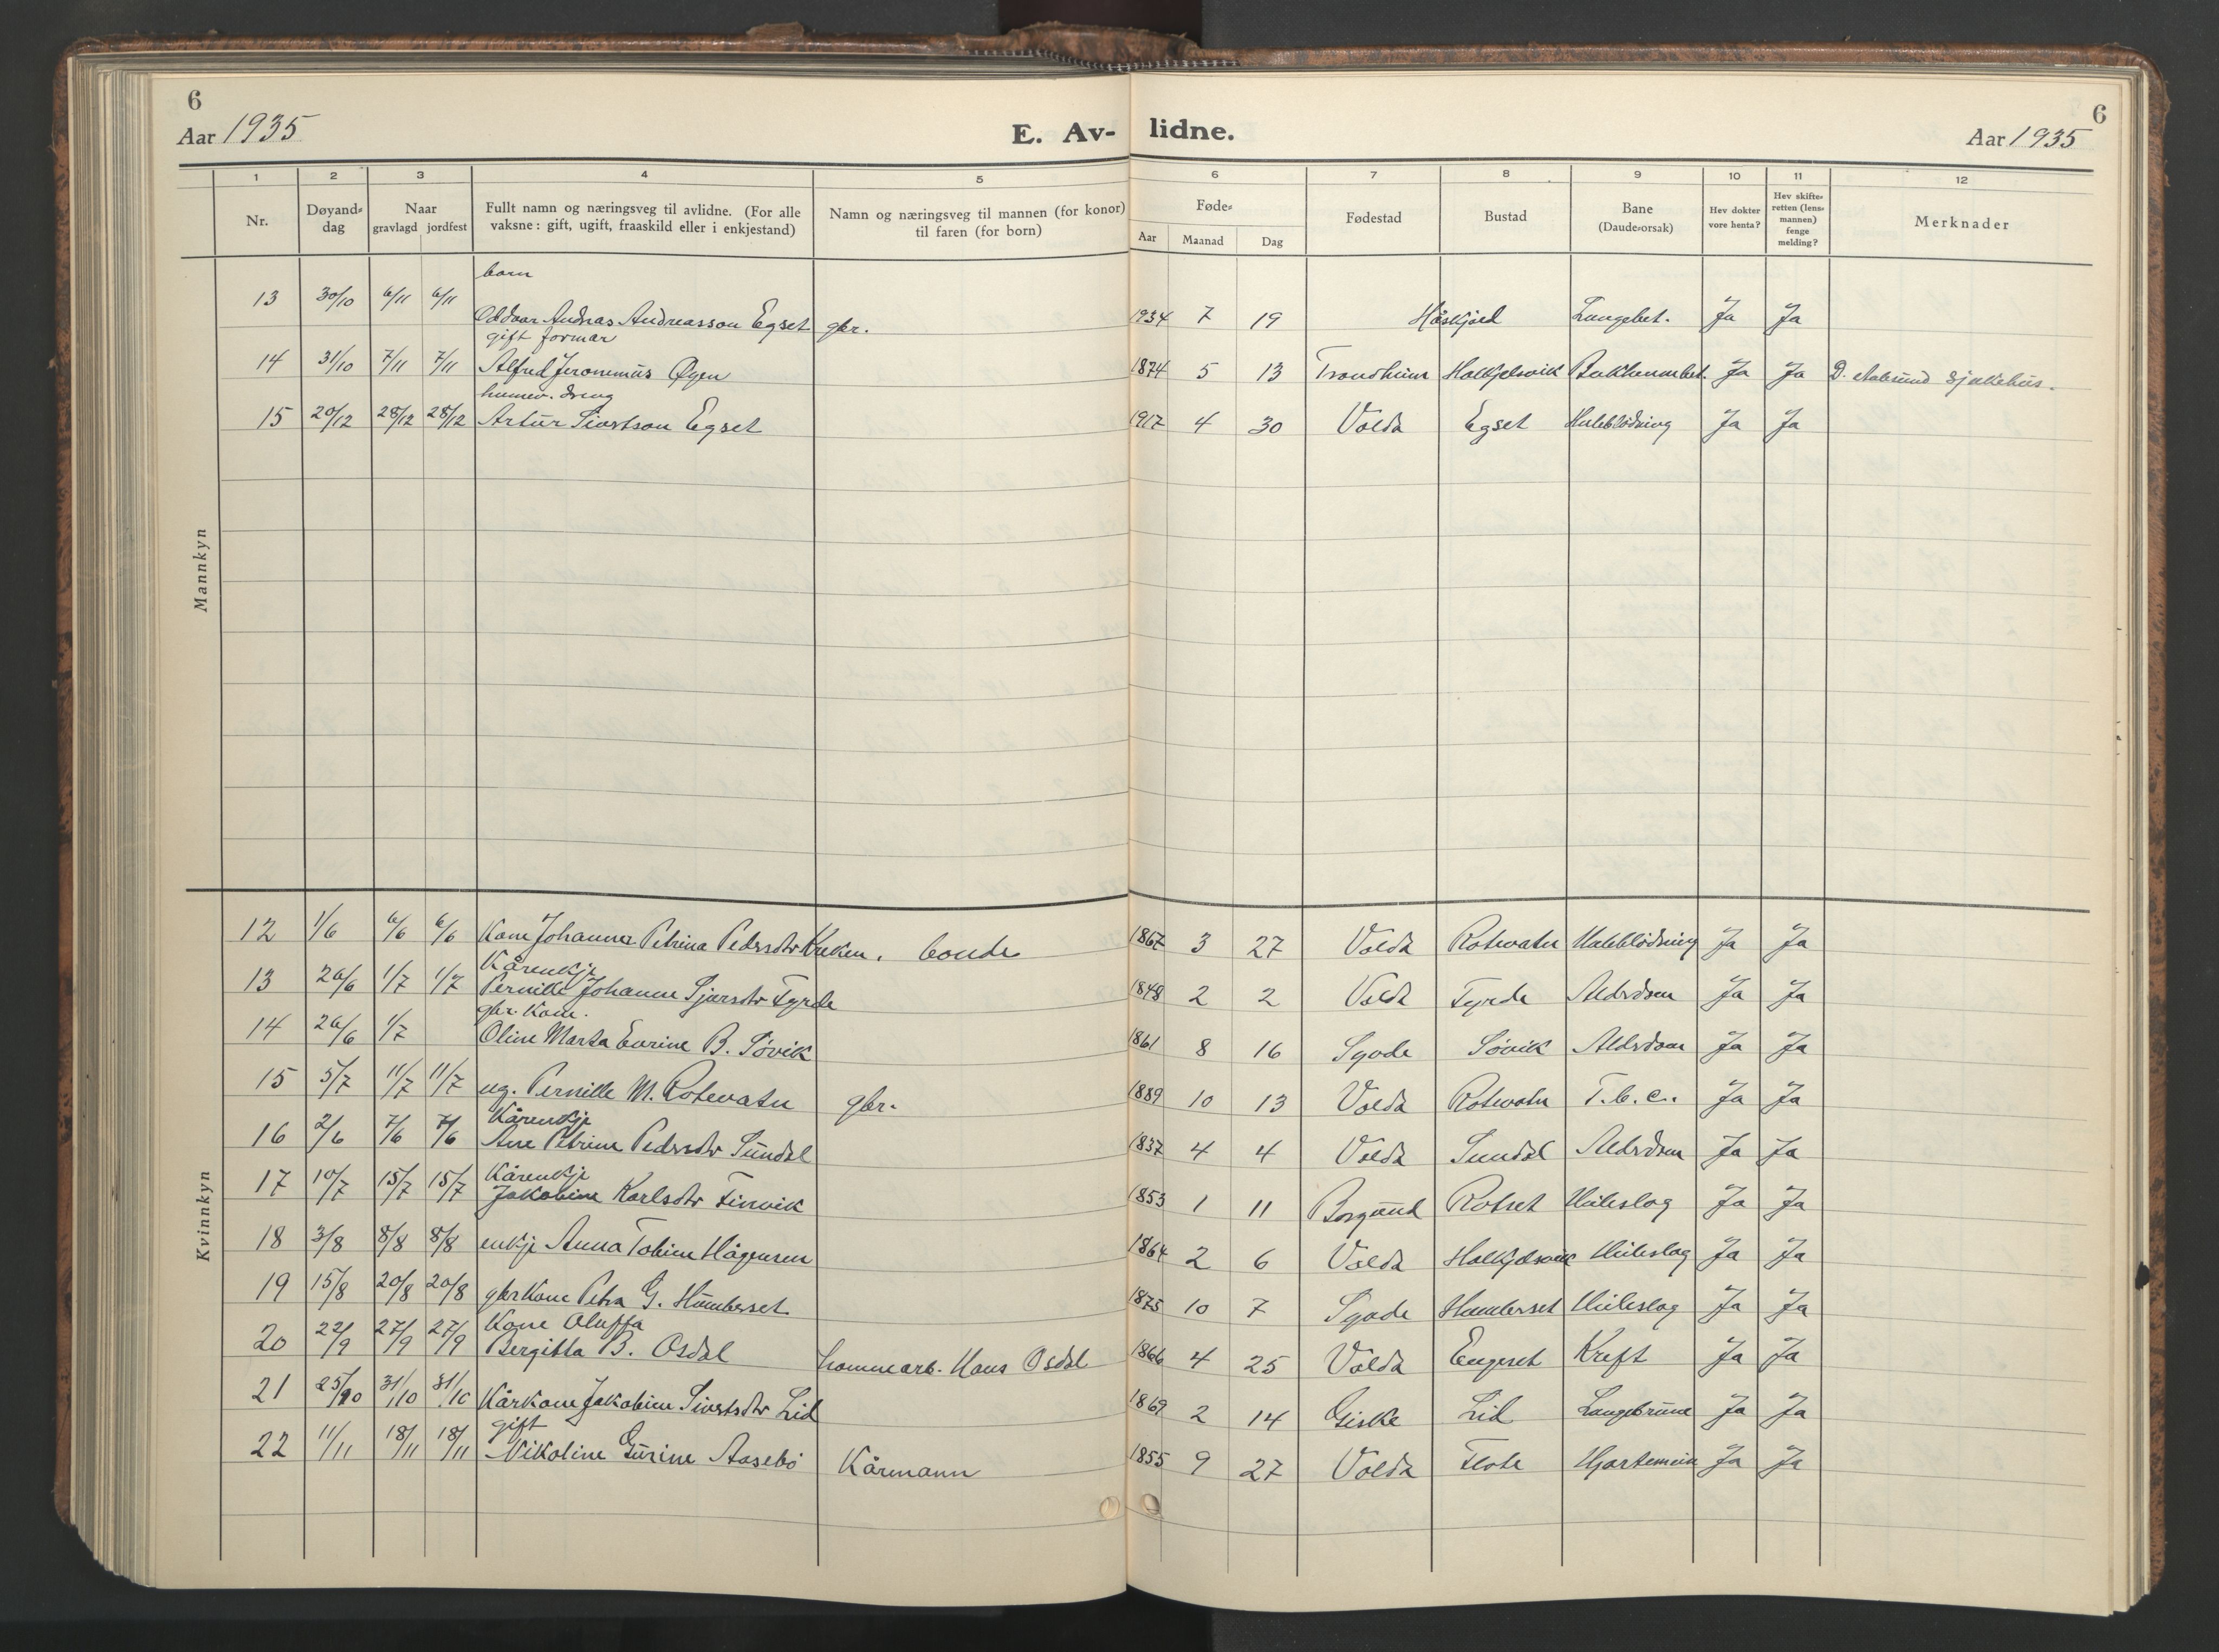 6
Aar 1935
E. Av-
lidne.
6
Aar 1935
1 2 3 4 5 6 7 8 9 10 11 12
Nr.
Døyand-
dag
Naar
gravlagd jordfest
Fullt namn og næringsveg til avlidne. (For alle
vaksne: gift, ugift, fraaskild eller i enkjestand)
Namn og næringsveg til mannen (for konor)
til faren (for born)
Føde-
Aar Maanad Dag
Fødestad
Bustad
Bane
(Daude-orsak)
Hev dokter
vore henta?
Hev skifte-
retten (lens-
mannen)
fenge
melding?
Merknader
Mannkyn
born
13 30/10 6/11 6/11 Oddvar Andreas Andreasson Egset gbr. 1934 7 19 Håskjold Lungebet. Ja Ja
gift formar
14 31/10 7/11 7/11 Alfred Jeronimus Øyen 1874 5 13 Trondheim Halkjelsvik Bukhinnebet. Ja Ja D. Aalesund Sjukehus.
15 20/12 28/12 28/12 Artur Sivertson Egset 1917 4 30 Volda Egset Heileblödning Ja Ja
Kvinnkyn
12 1/6 6/6 6/6 Kone Johanna Petrina Pedersdtr Kreken. bonde 1867 3 27 Volda Rotevatn Heileblödning Ja Ja
Kårenkje
13 26/6 1/7 1/7 Pernille Johanne Sjursdtr Fyrde 1848 2 2 Volda Fyrde Alderdom Ja Ja
gbr. Kone.
14 26/6 1/7 Oline Marta Eurine B. Sövik 1861 8 16 Syvde Sövik Alderdom Ja Ja
15 5/7 11/7 11/7 ug. Pernille M. Rotevatn gbr. 1889 10 13 Volda Rotevatn T.b.c. Ja Ja
Kårenkje
16 2/6 7/6 7/6 Ane Petrine Pedersdtr Sundal 1837 4 4 Volda Sundal Alderdom Ja Ja
Kårenkje
17 10/7 15/7 15/7 Jakobine Karlsdtr Finvik 1853 1 11 Borgund Rotset Heileslag Ja Ja
18 3/8 8/8 8/8 enkje Anna Tobine Hågensen 1864 2 6 Volda Halkjelsvik Heileslag Ja Ja
19 15/8 20/8 20/8 gbrkone Petra G. Humberset 1875 10 7 Syvde Humberset Heileslag Ja Ja
Kone Oluffa
20 22/9 27/9 27/9 Bergitta B. Osdal heimearb. Hans Osdal 1866 4 25 Volda Engeset Kreft Ja Ja
21 25/10 31/10 31/10 Kårkone Jakobine Sivertsdtr Lid 1869 2 14 Giske Lid Lungebrune Ja Ja
gift
22 11/11 18/11 18/11 Nikoline Gurine Aasebö Kårmann 1855 9 27 Volda Flote Hjartemein Ja Ja